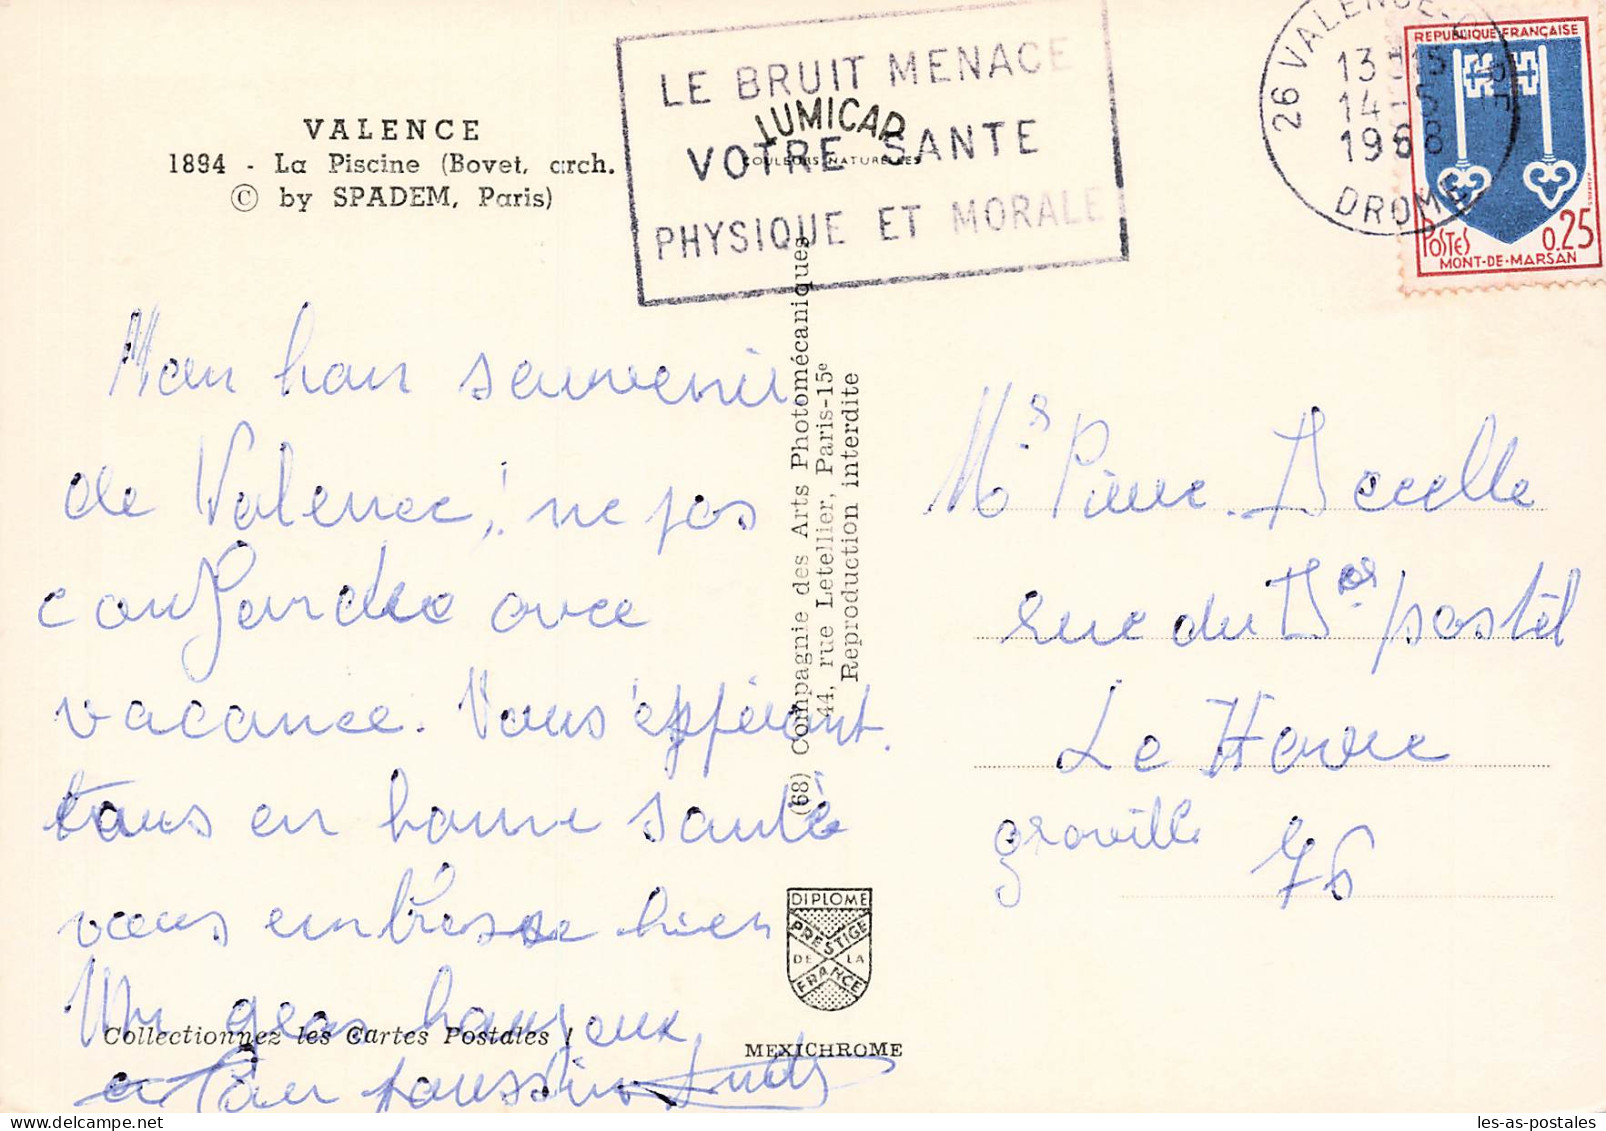 VALENCE
1894 - La Piscine (Bovet, arch.
© by SPADEM, Paris)
LE BRUIT MENACE
VOTRE SANTE
PHYSIQUE ET MORALE
LUMICAP
COULEURS NATURELLES
26 VALENCE
13 H 15
14 - 5
1968
DROME
REPUBLIQUE FRANÇAISE
POSTES
0.25
MONT-DE-MARSAN
Mon bon souvenir
de Valence, ! ne pas
confondre avec
vacance. Vous espérant
tous en bonne santé
vous embrasse bien
Un gros bonjour
(68) Compagnie des Arts Photomécaniques
44, rue Letellier, Paris-15e
Reproduction interdite
Mrs Pierre
rue du Dr postel
Le Havre
graville 76
DIPLOME
PRESTIGE
DE LA
FRANCE
Collectionnez les Cartes Postales !
MEXICHROME
les-as-postales.com